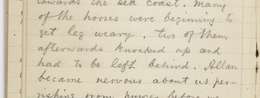 towards the sea coast. Many
of the horses were beginning to
get leg weary, two of them
afterwards knocked up and
had to be left behind. Allan
became nervous about us per-
ishing from hunger before we